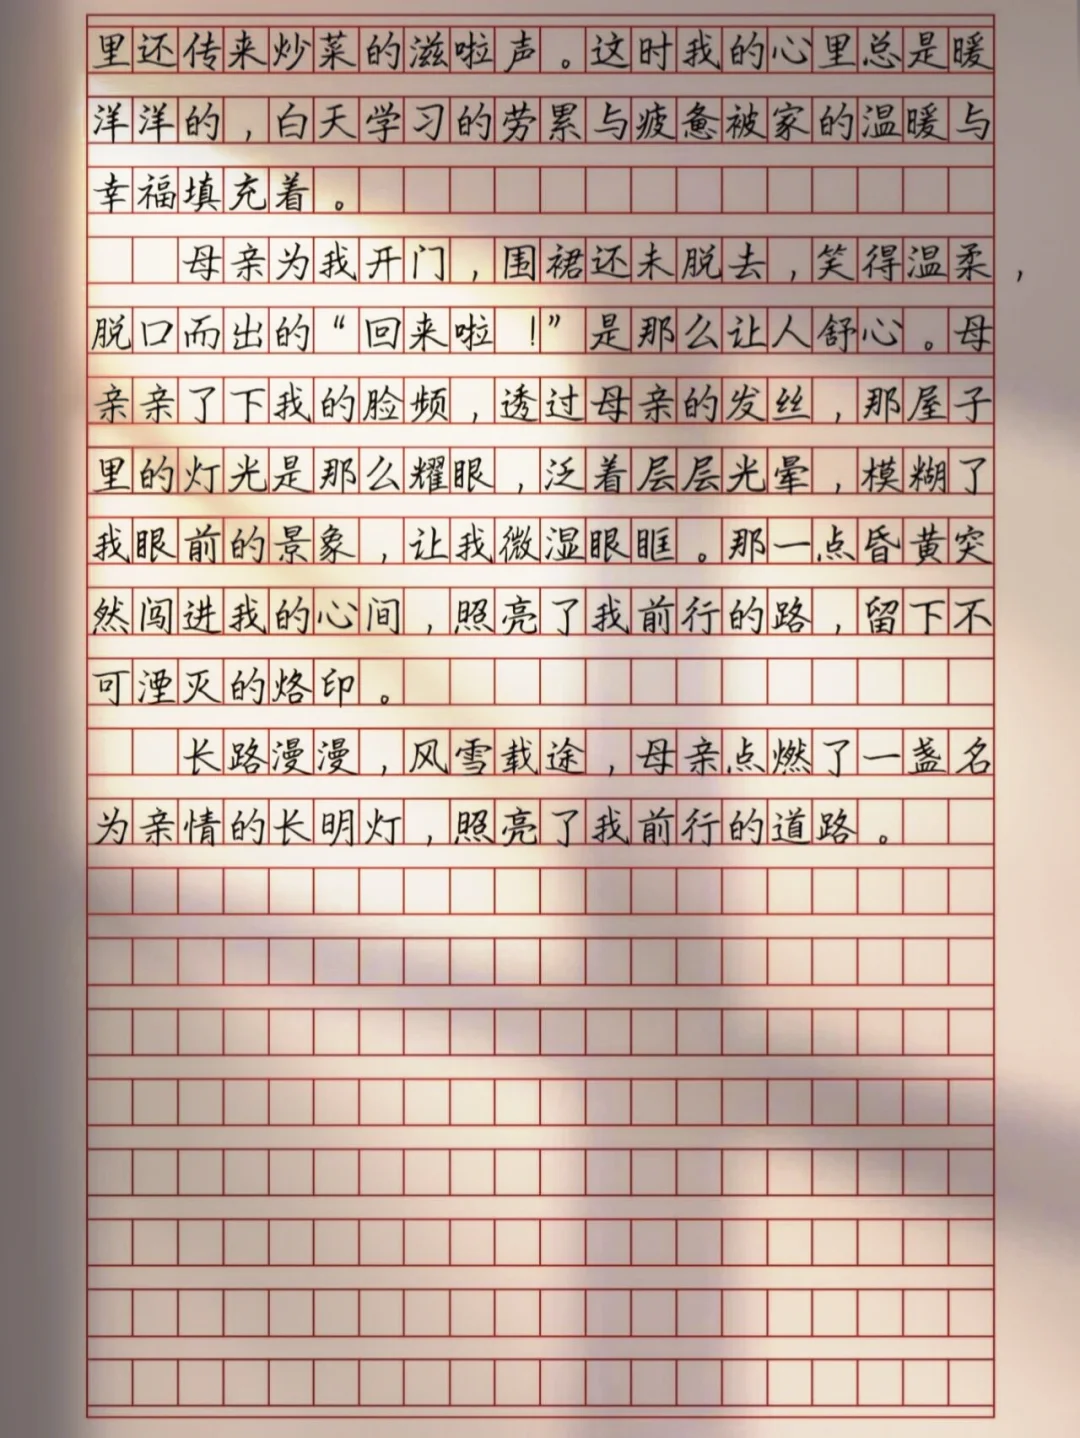 里还传来炒菜的滋啦声。这时我的心里总是暖
洋洋的，白天学习的劳累与疲惫被家的温暖与
幸福填充着。
母亲为我开门，围裙还未脱去，笑得温柔，
脱口而出的“回来啦！”是那么让人舒心。母
亲亲了下我的脸频，透过母亲的发丝，那屋子
里的灯光是那么耀眼，泛着层层光晕，模糊了
我眼前的景象，让我微湿眼眶。那一点昏黄突
然闯进我的心间，照亮了我前行的路，留下不
可湮灭的烙印。
长路漫漫，风雪载途，母亲点燃了一盏名
为亲情的长明灯，照亮了我前行的道路。